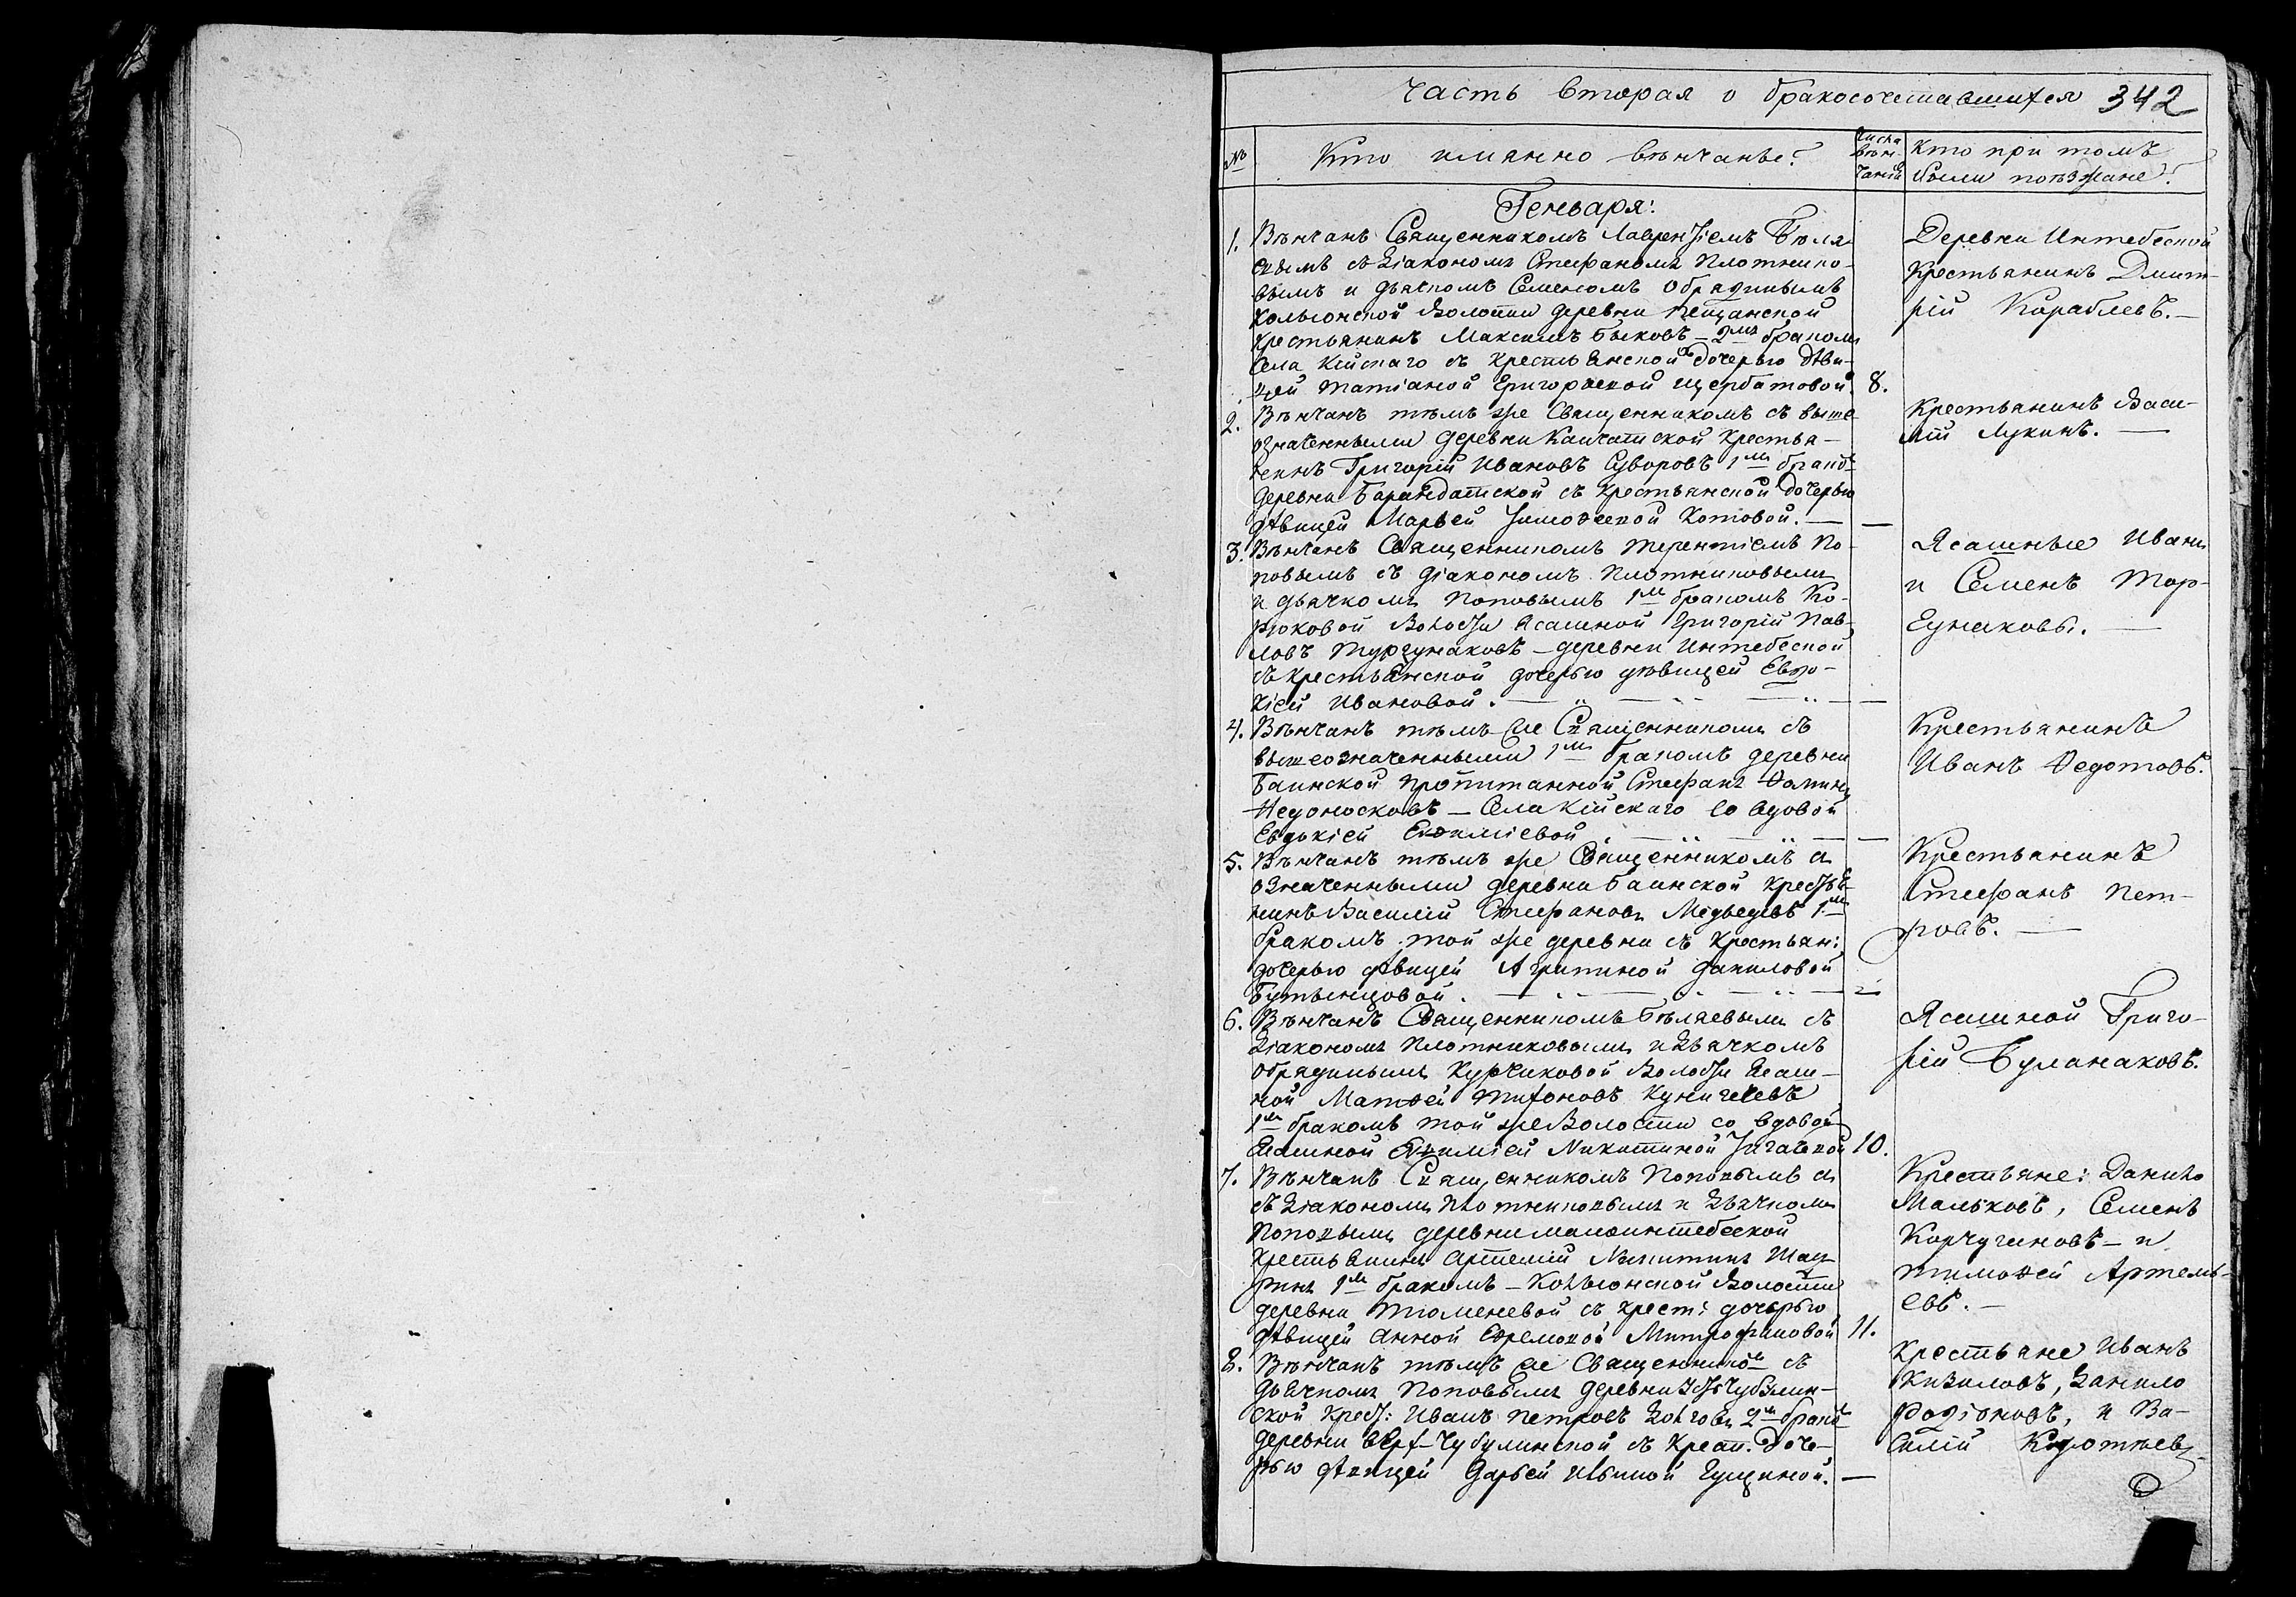 Часть вторая о бракосочетавшихся 342
№
Кто имянно вѣнчанъ?
Числа вѣнчаній
Кто при томъ были поѣзжане?
Генваря:
1. Вѣнчанъ Священникомъ Лаврентіемъ Бѣля-
евымъ съ Діакономъ Стефаномъ Плотнико-
вымъ и дьячкомъ Семеномъ Обрядинымъ
Кольонской Волости деревни Пещанской
крестьянинъ Максимъ Быковъ – 2мъ бракомъ
Села Кійскаго съ крестьянской дочерью дѣви-
цей Татіаной Григорьевой Щербатовой. 8.
Деревни Интебеской
Крестьянинъ Дмит-
рій Кораблевъ. –
2. Вѣнчанъ тѣмъ же Священникомъ съ выше
означенными деревни Камчатской крестья-
нинъ Григорій Ивановъ Суворовъ 1мъ брако
деревни Барандатской съ крестьянской дочерью
дѣвицей Марьей Тимоѳеевой Котовой. –
Крестьянинъ Васи-
лій Лукинъ. –
3. Вѣнчанъ Священникомъ Терентіемъ По-
повымъ съ діакономъ Плотниковымъ
и дьячкомъ Поповымъ 1мъ бракомъ Ко-
рюковой Волости Ясашной Григорій Пав-
ловъ Тургунаковъ – деревни Интебеской
съ крестьянской дочерью дѣвицей Евдо-
кіей Ивановой. –
Ясашные Иванъ
и Семенъ Тор-
гунаковы. –
4. Вѣнчанъ тѣмъ же Священникомъ съ
вышеозначенными 1мъ бракомъ деревни
Баимской пропитанной Стефанъ Ѳоминъ
Недоносковъ – Села Кійскаго со вдовой
Евдокіей Евѳиміевой. –
Крестьянинъ
Иванъ Ѳедотовъ.
5. Вѣнчанъ тѣмъ же Священникомъ съ
означенными деревни Баимской крестья-
нинъ Василій Стефановъ Медведевъ 1мъ
бракомъ той же деревни съ крестьян:
дочерью дѣвицей Агрипиной Даниловой
Бутынцовой. –
Крестьянинъ
Стефанъ Пет-
ровъ. –
6. Вѣнчанъ Священникомъ Бѣляевымъ съ
Діакономъ Плотниковымъ и Дьячкомъ
Обрядинымъ Курчиковой Волости Ясаш-
ной Матѳей Тихоновъ Кунгачевъ
1мъ бракомъ той же Волости со вдовой
Ясашной Евѳиміей Никитиной 10.
Ясашной Григо-
рій Буланаковъ.
7. Вѣнчанъ Священникомъ Поповымъ съ
съ Діакономъ Плотниковымъ и Дьячкомъ
Поповымъ деревни малоинтебеской
крестьянинъ Артемій Никитинъ
1мъ бракомъ – Кольонской Волости
деревни Тюменевой съ крест: дочерью
дѣвицей Анной Ефремовой Митрофановой 11.
Крестьяне: Данило
Мальковъ, Семенъ
Корчугановъ – и
Тимоѳей Артемь-
евъ. –
8. Вѣнчанъ тѣмъ же Священнико съ
дьячкомъ Поповымъ деревни Усть Чубулин-
ской крест: Иванъ Петровъ Долговъ 2мъ брако
деревни Верх-Чубулинской съ крест. доче-
рью дѣвицей Дарьей Ильиной Гущиной. –
Крестьяне Иванъ
Кизиловъ, Данило
Родіоновъ, и Ва-
силій Коротневъ